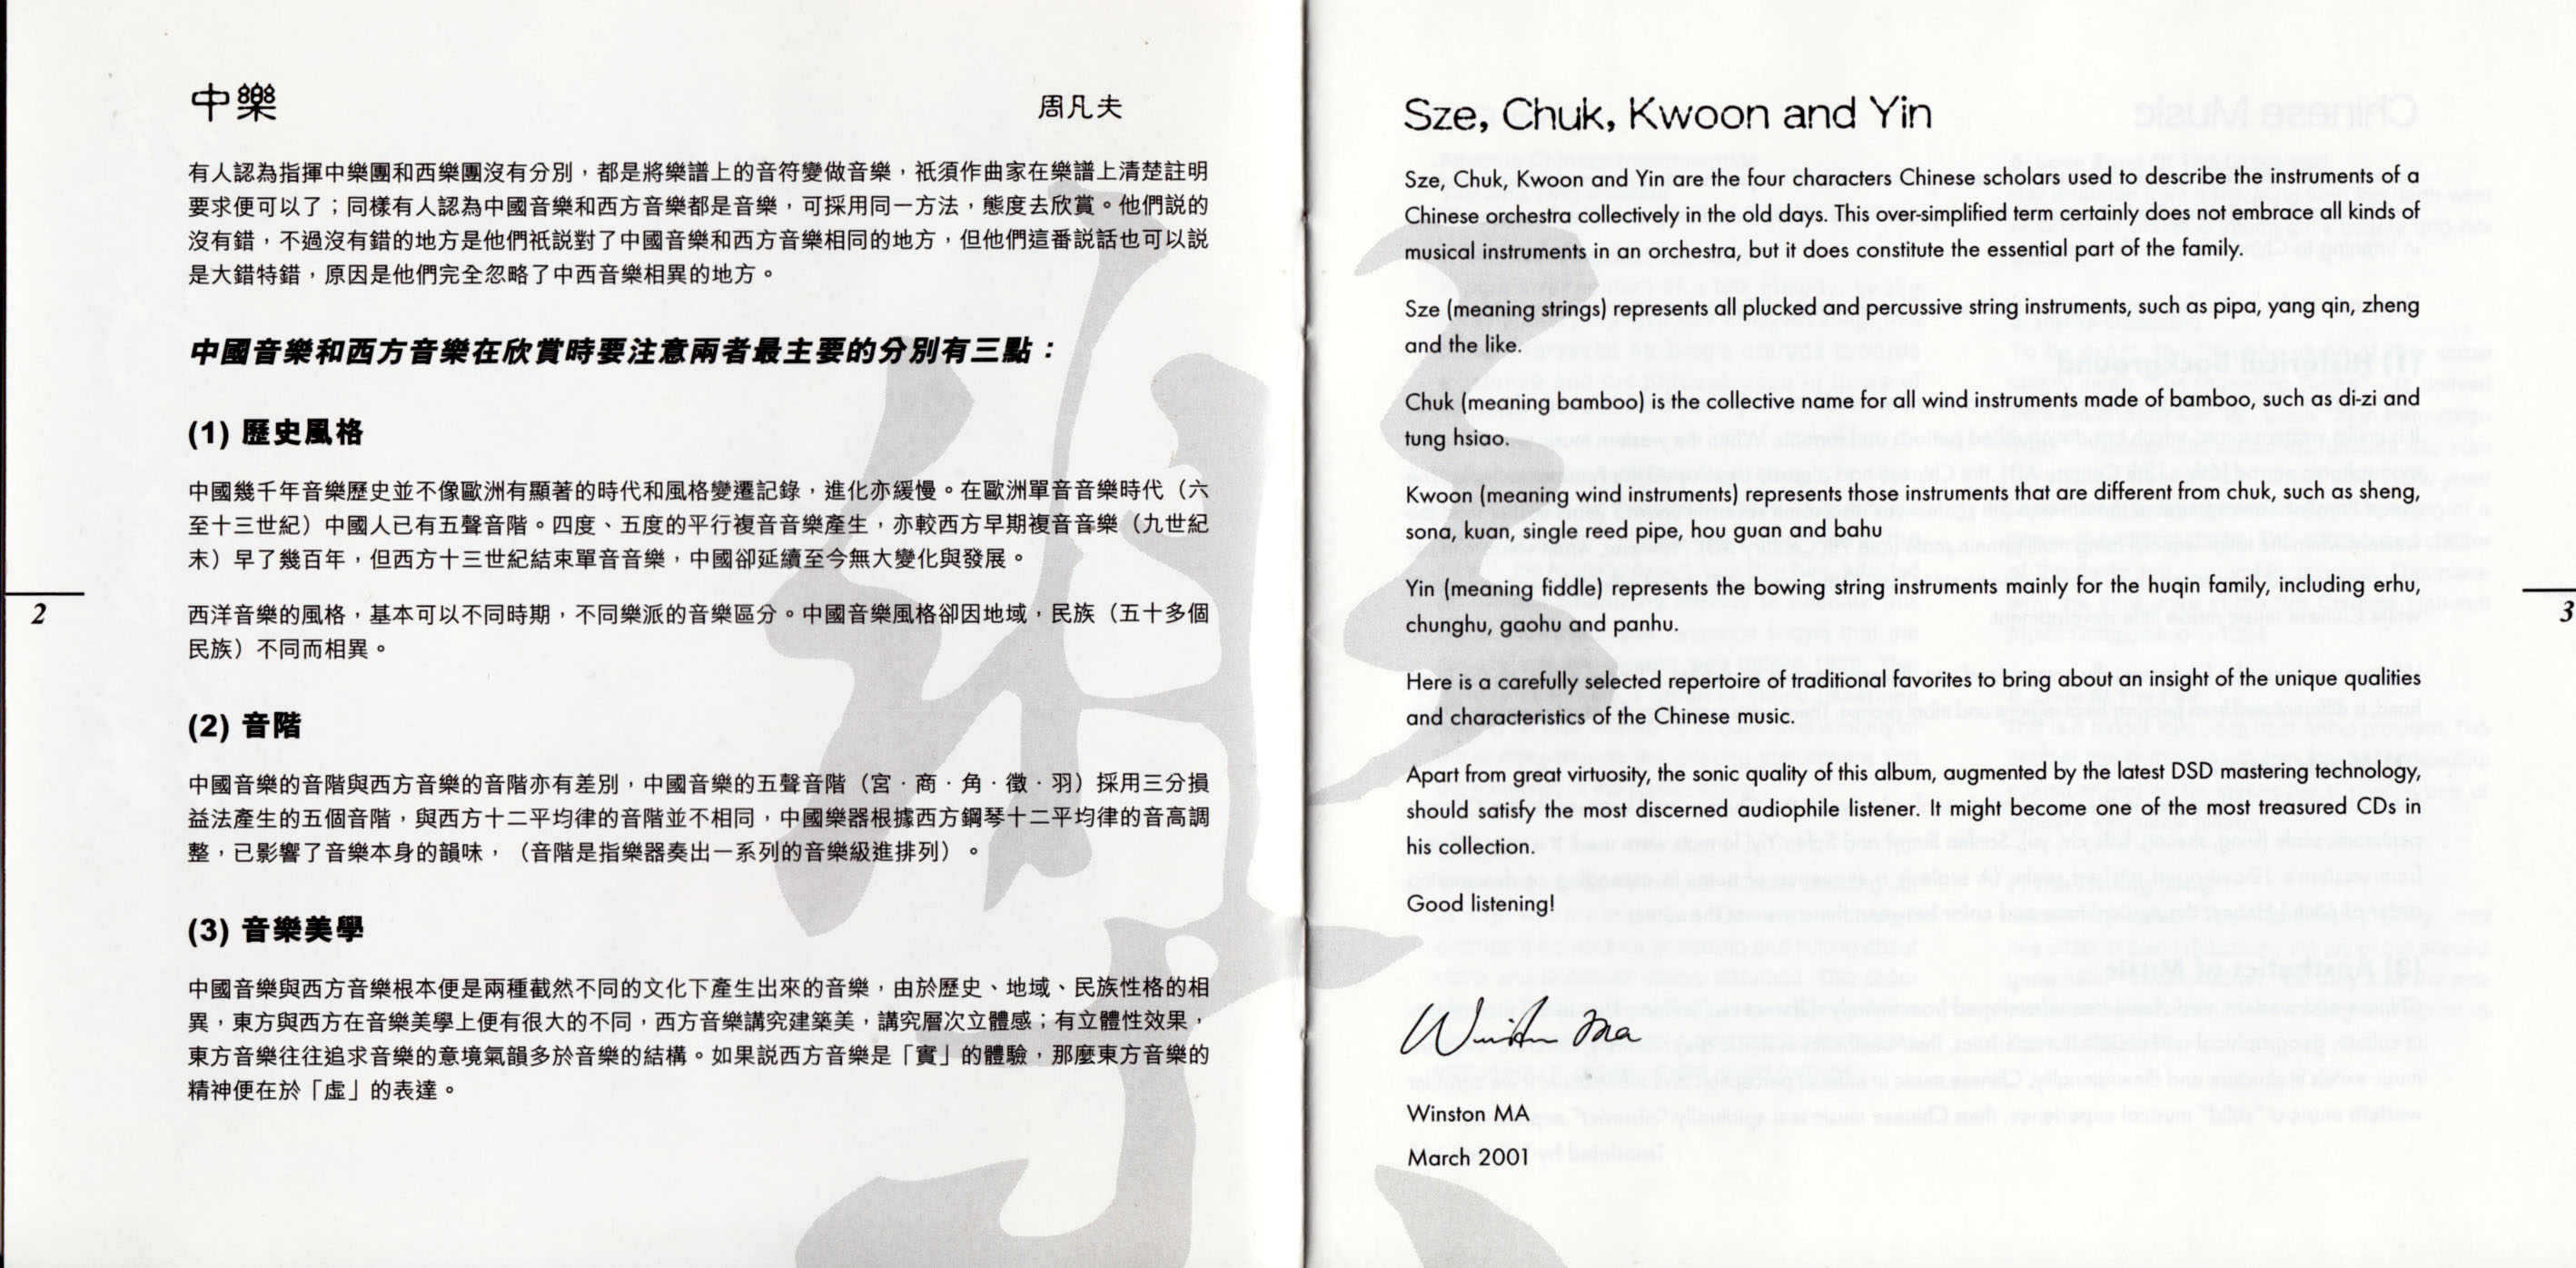 中樂
周凡夫
有人認為指揮中樂團和西樂團沒有分別，都是將樂譜上的音符變做音樂，祇須作曲家在樂譜上清楚註明
要求便可以了；同樣有人認為中國音樂和西方音樂都是音樂，可採用同一方法，態度去欣賞。他們説的
沒有錯，不過沒有錯的地方是他們祇説對了中國音樂和西方音樂相同的地方，但他們這番説話也可以説
是大錯特錯，原因是他們完全忽略了中西音樂相異的地方。
中國音樂和西方音樂在欣賞時要注意兩者最主要的分別有三點：
(1) 歷史風格
中國幾千年音樂歷史並不像歐洲有顯著的時代和風格變遷記錄，進化亦緩慢。在歐洲單音音樂時代（六
至十三世紀）中國人已有五聲音階。四度、五度的平行複音音樂產生，亦較西方早期複音音樂（九世紀
末）早了幾百年，但西方十三世紀結束單音音樂，中國卻延續至今無大變化與發展。
西洋音樂的風格，基本可以不同時期，不同樂派的音樂區分。中國音樂風格卻因地域，民族（五十多個
民族）不同而相異。
(2) 音階
中國音樂的音階與西方音樂的音階亦有差別，中國音樂的五聲音階（宮．商．角．徵．羽）採用三分損
益法產生的五個音階，與西方十二平均律的音階並不相同，中國樂器根據西方鋼琴十二平均律的音高調
整，已影響了音樂本身的韻味，（音階是指樂器奏出一系列的音樂級進排列）。
(3) 音樂美學
中國音樂與西方音樂根本便是兩種截然不同的文化下產生出來的音樂，由於歷史、地域、民族性格的相
異，東方與西方在音樂美學上便有很大的不同，西方音樂講究建築美，講究層次立體感；有立體性效果，
東方音樂往往追求音樂的意境氣韻多於音樂的結構。如果説西方音樂是「實」的體驗，那麼東方音樂的
精神便在於「虛」的表達。
2
Sze, Chuk, Kwoon and Yin
Sze, Chuk, Kwoon and Yin are the four characters Chinese scholars used to describe the instruments of a
Chinese orchestra collectively in the old days. This over-simplified term certainly does not embrace all kinds of
musical instruments in an orchestra, but it does constitute the essential part of the family.
Sze (meaning strings) represents all plucked and percussive string instruments, such as pipa, yang qin, zheng
and the like.
Chuk (meaning bamboo) is the collective name for all wind instruments made of bamboo, such as di-zi and
tung hsiao.
Kwoon (meaning wind instruments) represents those instruments that are different from chuk, such as sheng,
sona, kuan, single reed pipe, hou guan and bahu
Yin (meaning fiddle) represents the bowing string instruments mainly for the huqin family, including erhu,
chunghu, gaohu and panhu.
Here is a carefully selected repertoire of traditional favorites to bring about an insight of the unique qualities
and characteristics of the Chinese music.
Apart from great virtuosity, the sonic quality of this album, augmented by the latest DSD mastering technology,
should satisfy the most discerned audiophile listener. It might become one of the most treasured CDs in
his collection.
Good listening!
Winston Ma
Winston MA
March 2001
3